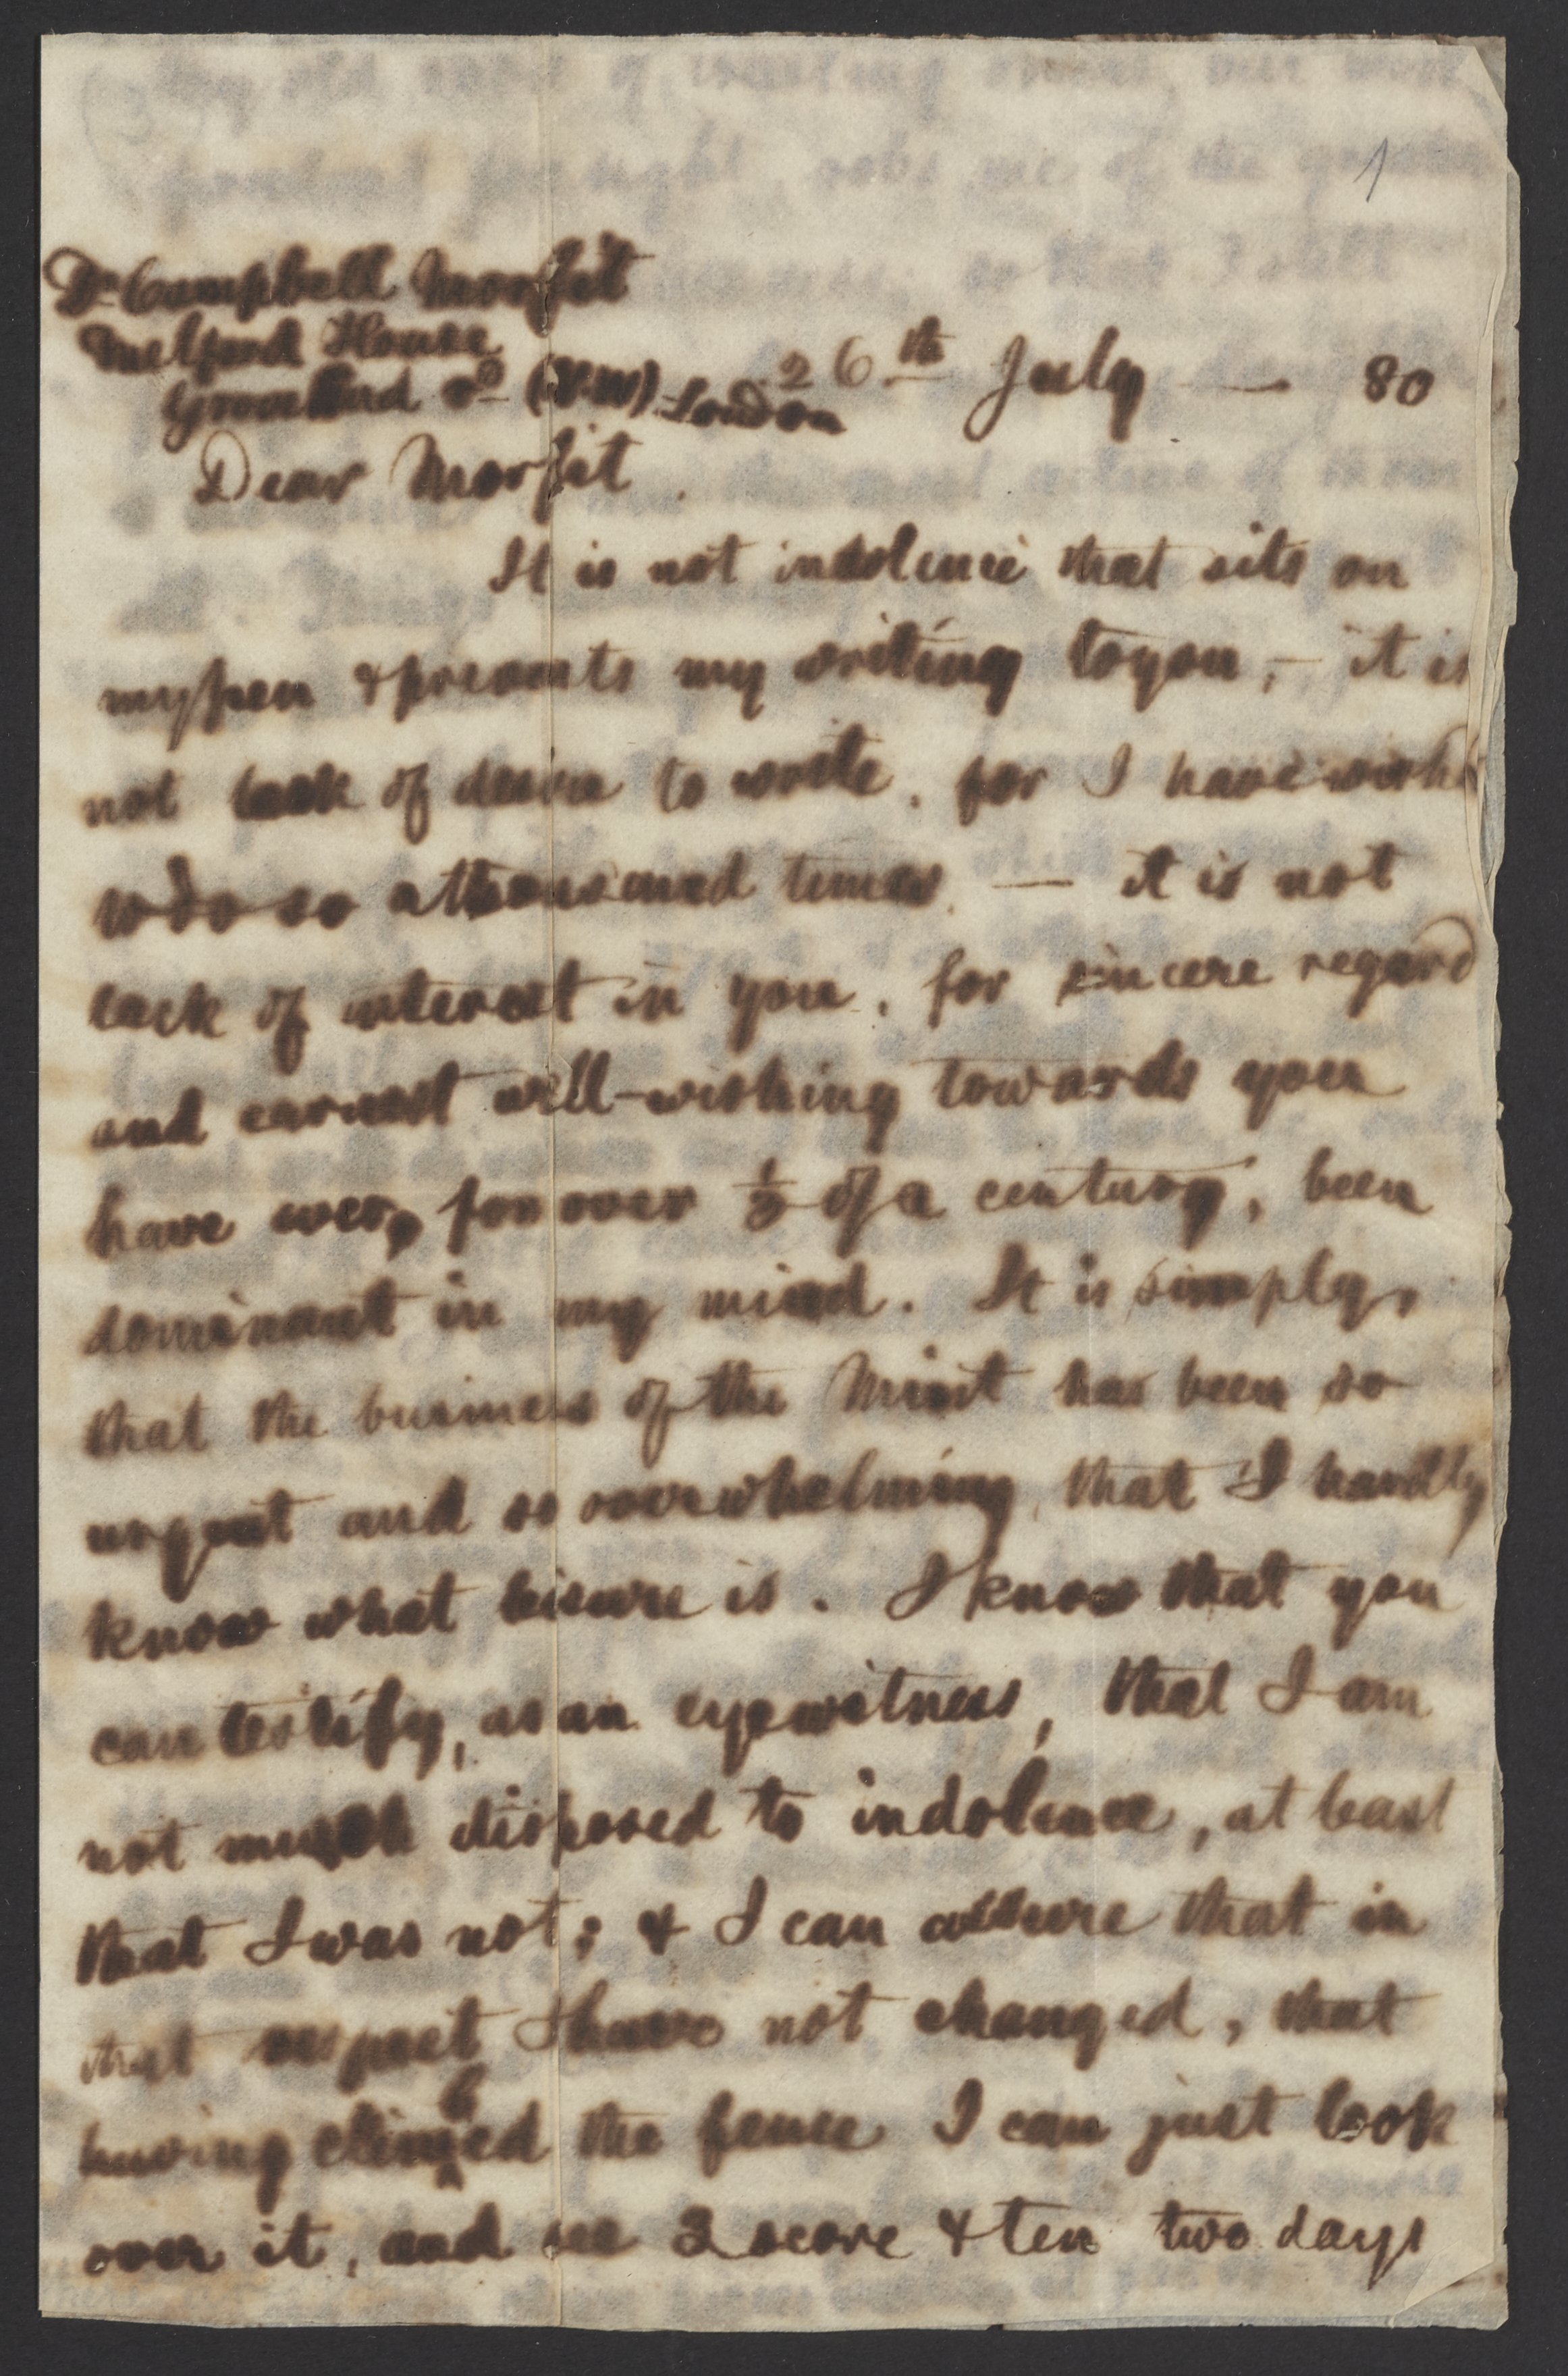 1
Dr Campbell Morfit
Melford House
Rd (N.W) London
26th July — 80
Dear Morfit.
It is not indolence that sits on
my pen & prevents my writing to you, — it is
not lack of desire to write, for I have wishd
to do so a thousand times. — it is not
lack of interest in you, for sincere regard
and earnest well-wishing towards you
have ever, for over ⅓ of a century, been
dominant in my mind. It is simply,
that the business of the Mint has been so
urgent and so overwhelming, that I hardly
know what leisure is. I know that you
can testify, as an eyewitness, that I am
not much disposed to indolence, at least
that I was not; & I can assure that in
that respect I have not changed, that
having climbed the fence I can just look
over it, and see 3 score & ten two days